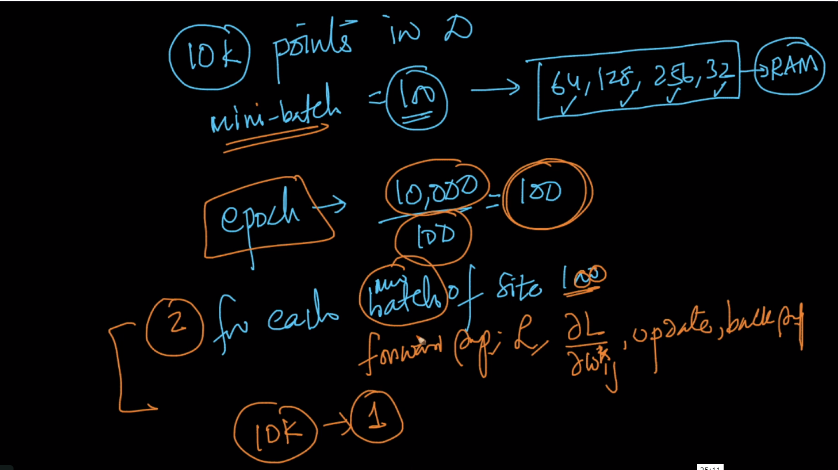 10K points in D
mini-batch = 100 → 64, 128, 256, 32 → RAM
epoch → 10,000 / 100 = 100
2 for each mini batch of size 100
forward prop; L, ∂L/∂w^k_ij, update, back prop
10K → 1
25:11